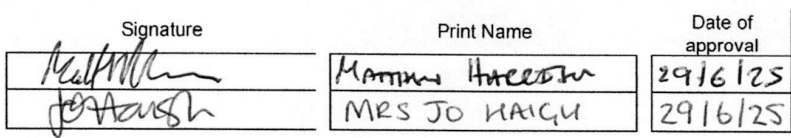 Signature Print Name Date of approval
MATTHEW 29/6/25
JO Haigh MRS JO HAIGH 29/6/25